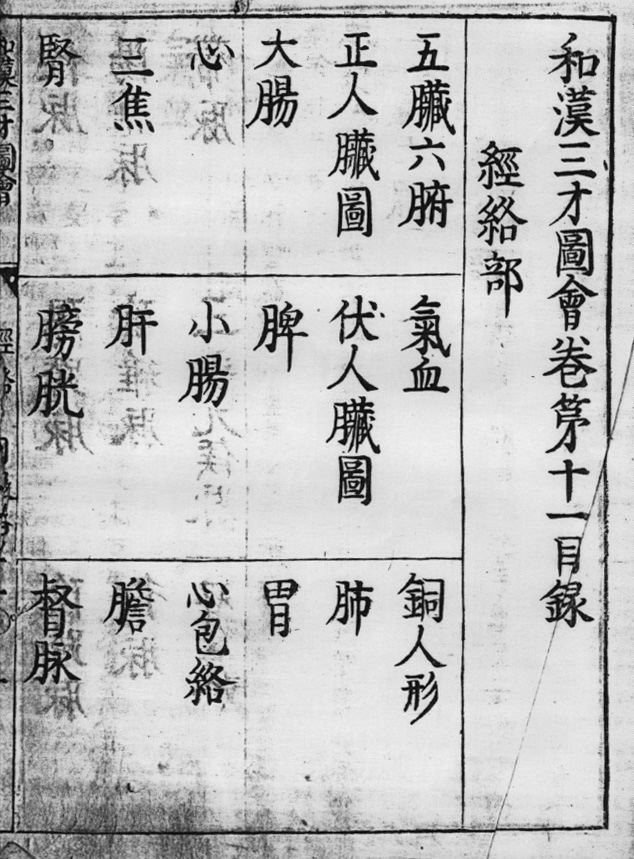 和漢三才圖會卷苐十一目録
經絡部
五臟六腑
氣血
銅人形
正人臟圖
伏人臟圖
肺
大腸
脾
胃
心
小腸
心包絡
三焦
肝
膽
腎
膀胱
督脉
和漢三才圖會
經絡